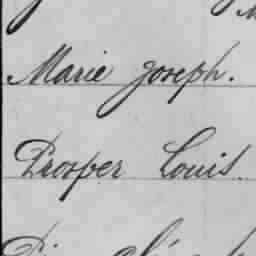 Marie Joseph.
Prosper Louis.